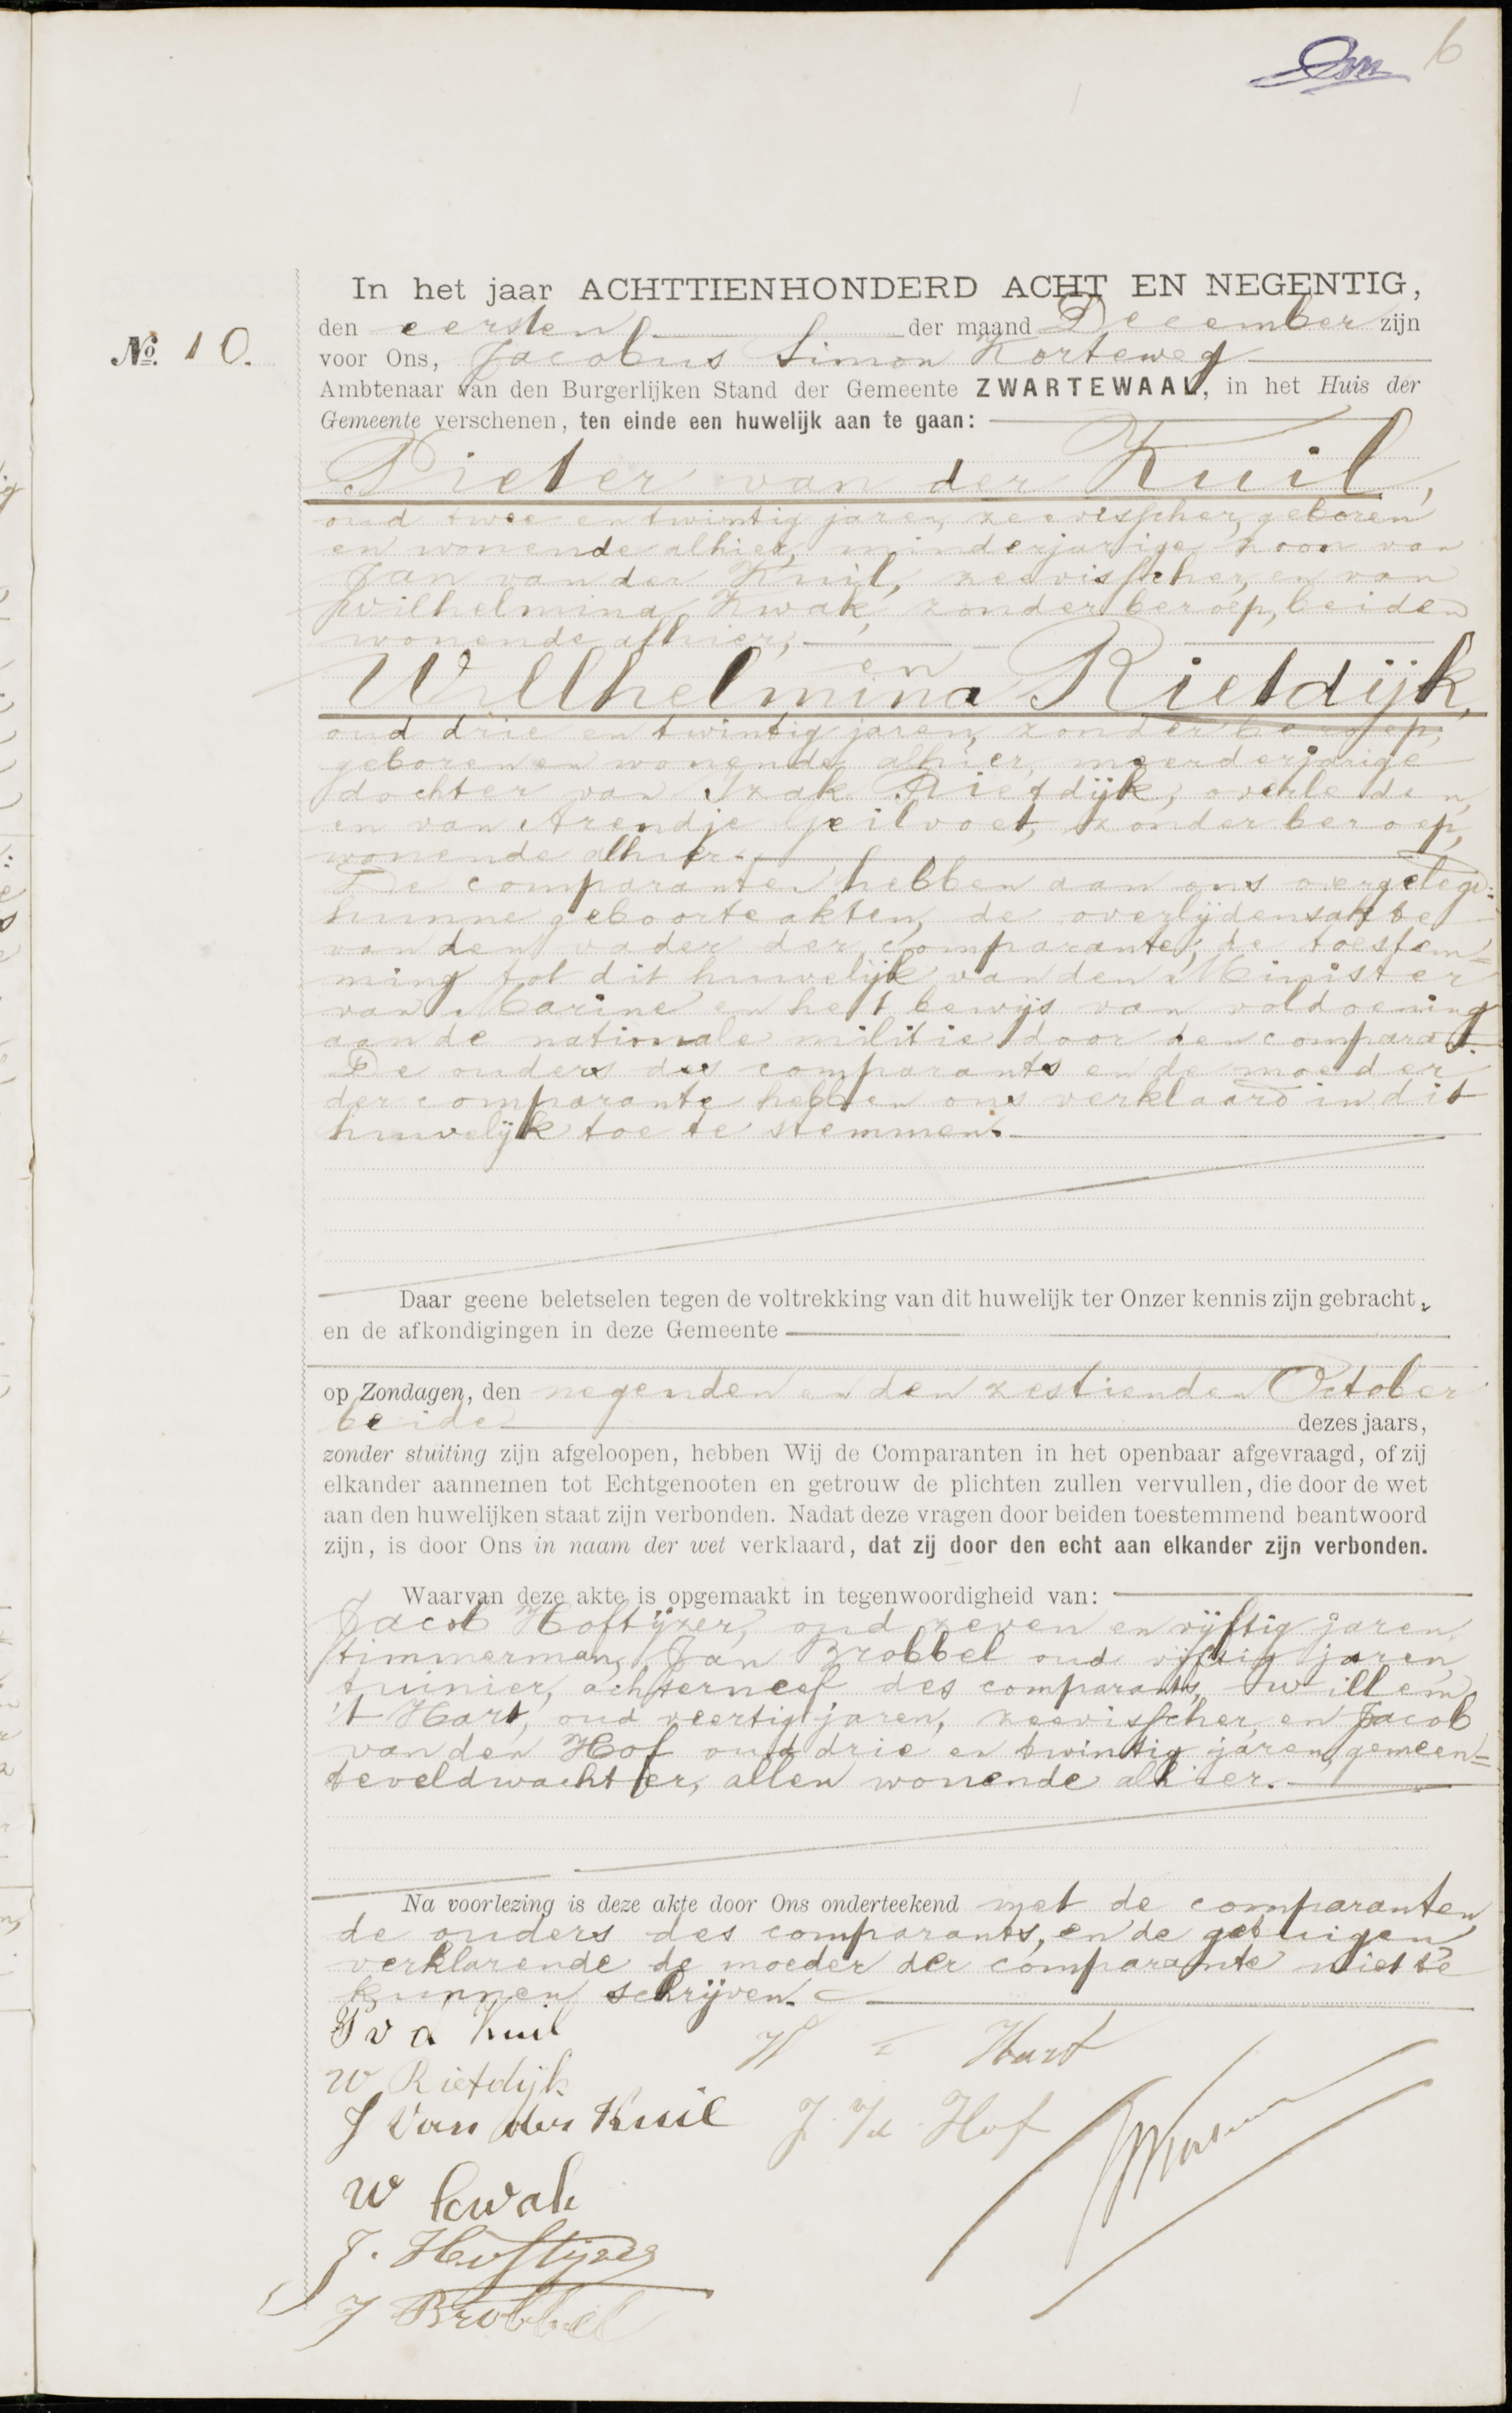 6
No. 10.
In het jaar ACHTTIENHONDERD ACHT EN NEGENTIG,
den eersten der maand December zijn
voor Ons, Jacobus Simon Korteweg
Ambtenaar van den Burgerlijken Stand der Gemeente ZWARTEWAAL, in het Huis der
Gemeente verschenen, ten einde een huwelijk aan te gaan:
Pieter van der Kuil,
oud twee en twintig jaren, zeevisscher, geboren
en wonende alhier, minderjarige zoon van
Jan van der Kuil, zeevisscher, en van
Wilhelmina Kwak, zonder beroep, beiden
wonende alhier,
en
Willhelmina Rietdijk,
oud drie en twintig jaren, zonder beroep,
geboren en wonende alhier, meerderjarige
dochter van Izak Rietdijk, overleden,
en van Arendje Geilvoet, zonder beroep,
wonende alhier.
De comparanten hebben aan ons overgelegd:
hunne geboorteakten, de overlijdensakte
van den vader der comparante, de toestem=
ming tot dit huwelijk van den Minister
van Marine en het bewijs van voldoening
aan de nationale militie door den comparant.
De ouders des comparants en de moeder
der comparante hebben ons verklaard in dit
huwelijk toe te stemmen.
Daar geene beletselen tegen de voltrekking van dit huwelijk ter Onzer kennis zijn gebracht,
en de afkondigingen in deze Gemeente
op Zondagen, den negenden en den zestienden October
beide dezes jaars,
zonder stuiting zijn afgeloopen, hebben Wij de Comparanten in het openbaar afgevraagd, of zij
elkander aannemen tot Echtgenooten en getrouw de plichten zullen vervullen, die door de wet
aan den huwelijken staat zijn verbonden. Nadat deze vragen door beiden toestemmend beantwoord
zijn, is door Ons in naam der wet verklaard, dat zij door den echt aan elkander zijn verbonden.
Waarvan deze akte is opgemaakt in tegenwoordigheid van:
Jacob Hoftijzer, oud zeven en vijftig jaren,
timmerman, Jan Brobbel oud vijftig jaren,
tuinier, achterneef des comparants, Willem
't Hart, oud veertig jaren, zeevisscher, en Jacob
van den Hof oud drie en twintig jaren, gemeen=
teveldwachter, allen wonende alhier.
Na voorlezing is deze akte door Ons onderteekend met de comparanten,
de ouders des comparants, en de getuigen,
verklarende de moeder der comparante niet te
kunnen schrijven.
P v d Kuil
W t Hart
W Rietdijk
J Van der Kuil
J. v/d Hof
W Kwak
J. Hoftijzer
J Brobbel